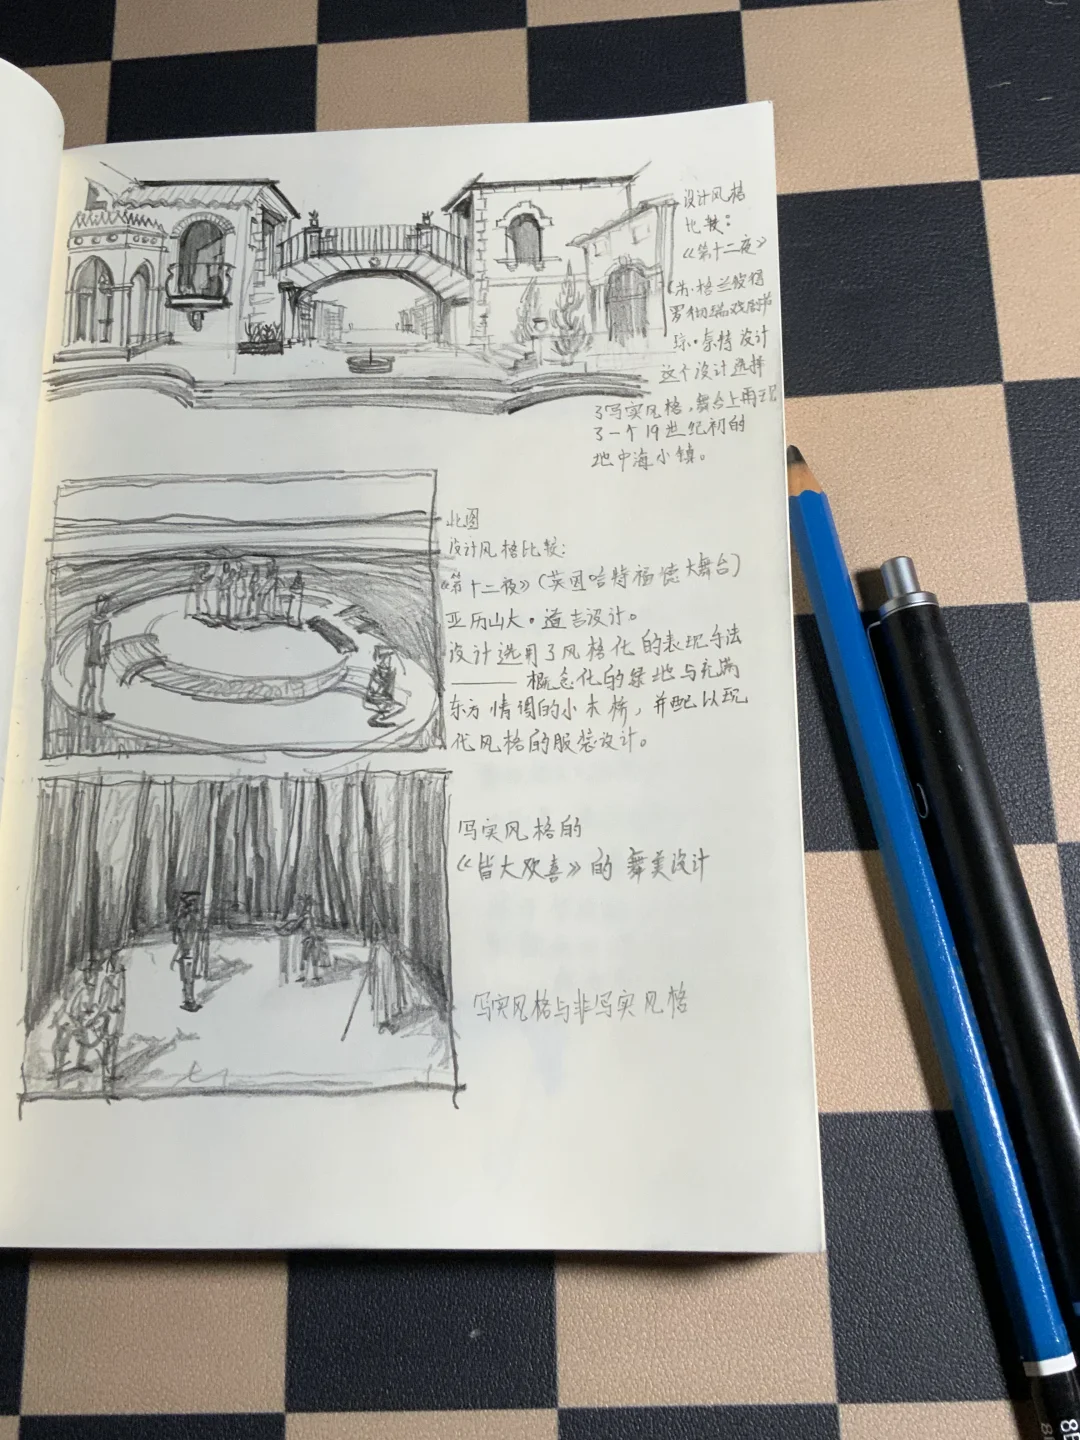 设计风格
比较：
《第十二夜》
为·格兰彼得
罗彻瑞戏剧节
琼·泰特设计
这个设计选择
了写实风格，舞台上再现
了一个19世纪初的
地中海小镇。
此图
设计风格比较：
《第十二夜》（英国哈特福德大舞台）
亚历山大·道吉设计。
设计选用了风格化的表现手法
——概念化的绿地与充满
东方情调的小木桥，并配以现
代风格的服装设计。
写实风格的
《皆大欢喜》的舞美设计
写实风格与非写实风格